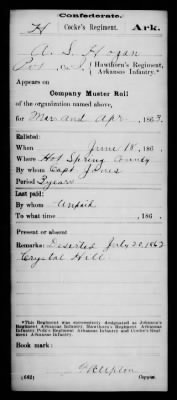 Confederate.
H Cocke's Regiment. Ark.
A. S. Hogan
Pvt Co. { Hawthorn's Regiment,
Arkansas Infantry.*
Appears on
Company Muster Roll
of the organization named above,
for Mar and Apr, 1863.
Enlisted:
When June 18, 186
Where Hot Spring County
By whom Capt Jones
Period 3 years
Last paid:
By whom Unpaid
To what time , 186 .
Present or absent
Remarks: Deserted July 20 1862
Crystal Hill
*This Regiment was successively designated as Johnson's
Regiment Arkansas Infantry, Hawthorn's Regiment, Arkansas
Infantry, Polk's Regiment Arkansas Infantry and Cocke's Regiment
Arkansas Infantry.
Book mark:
(642) Copyist.